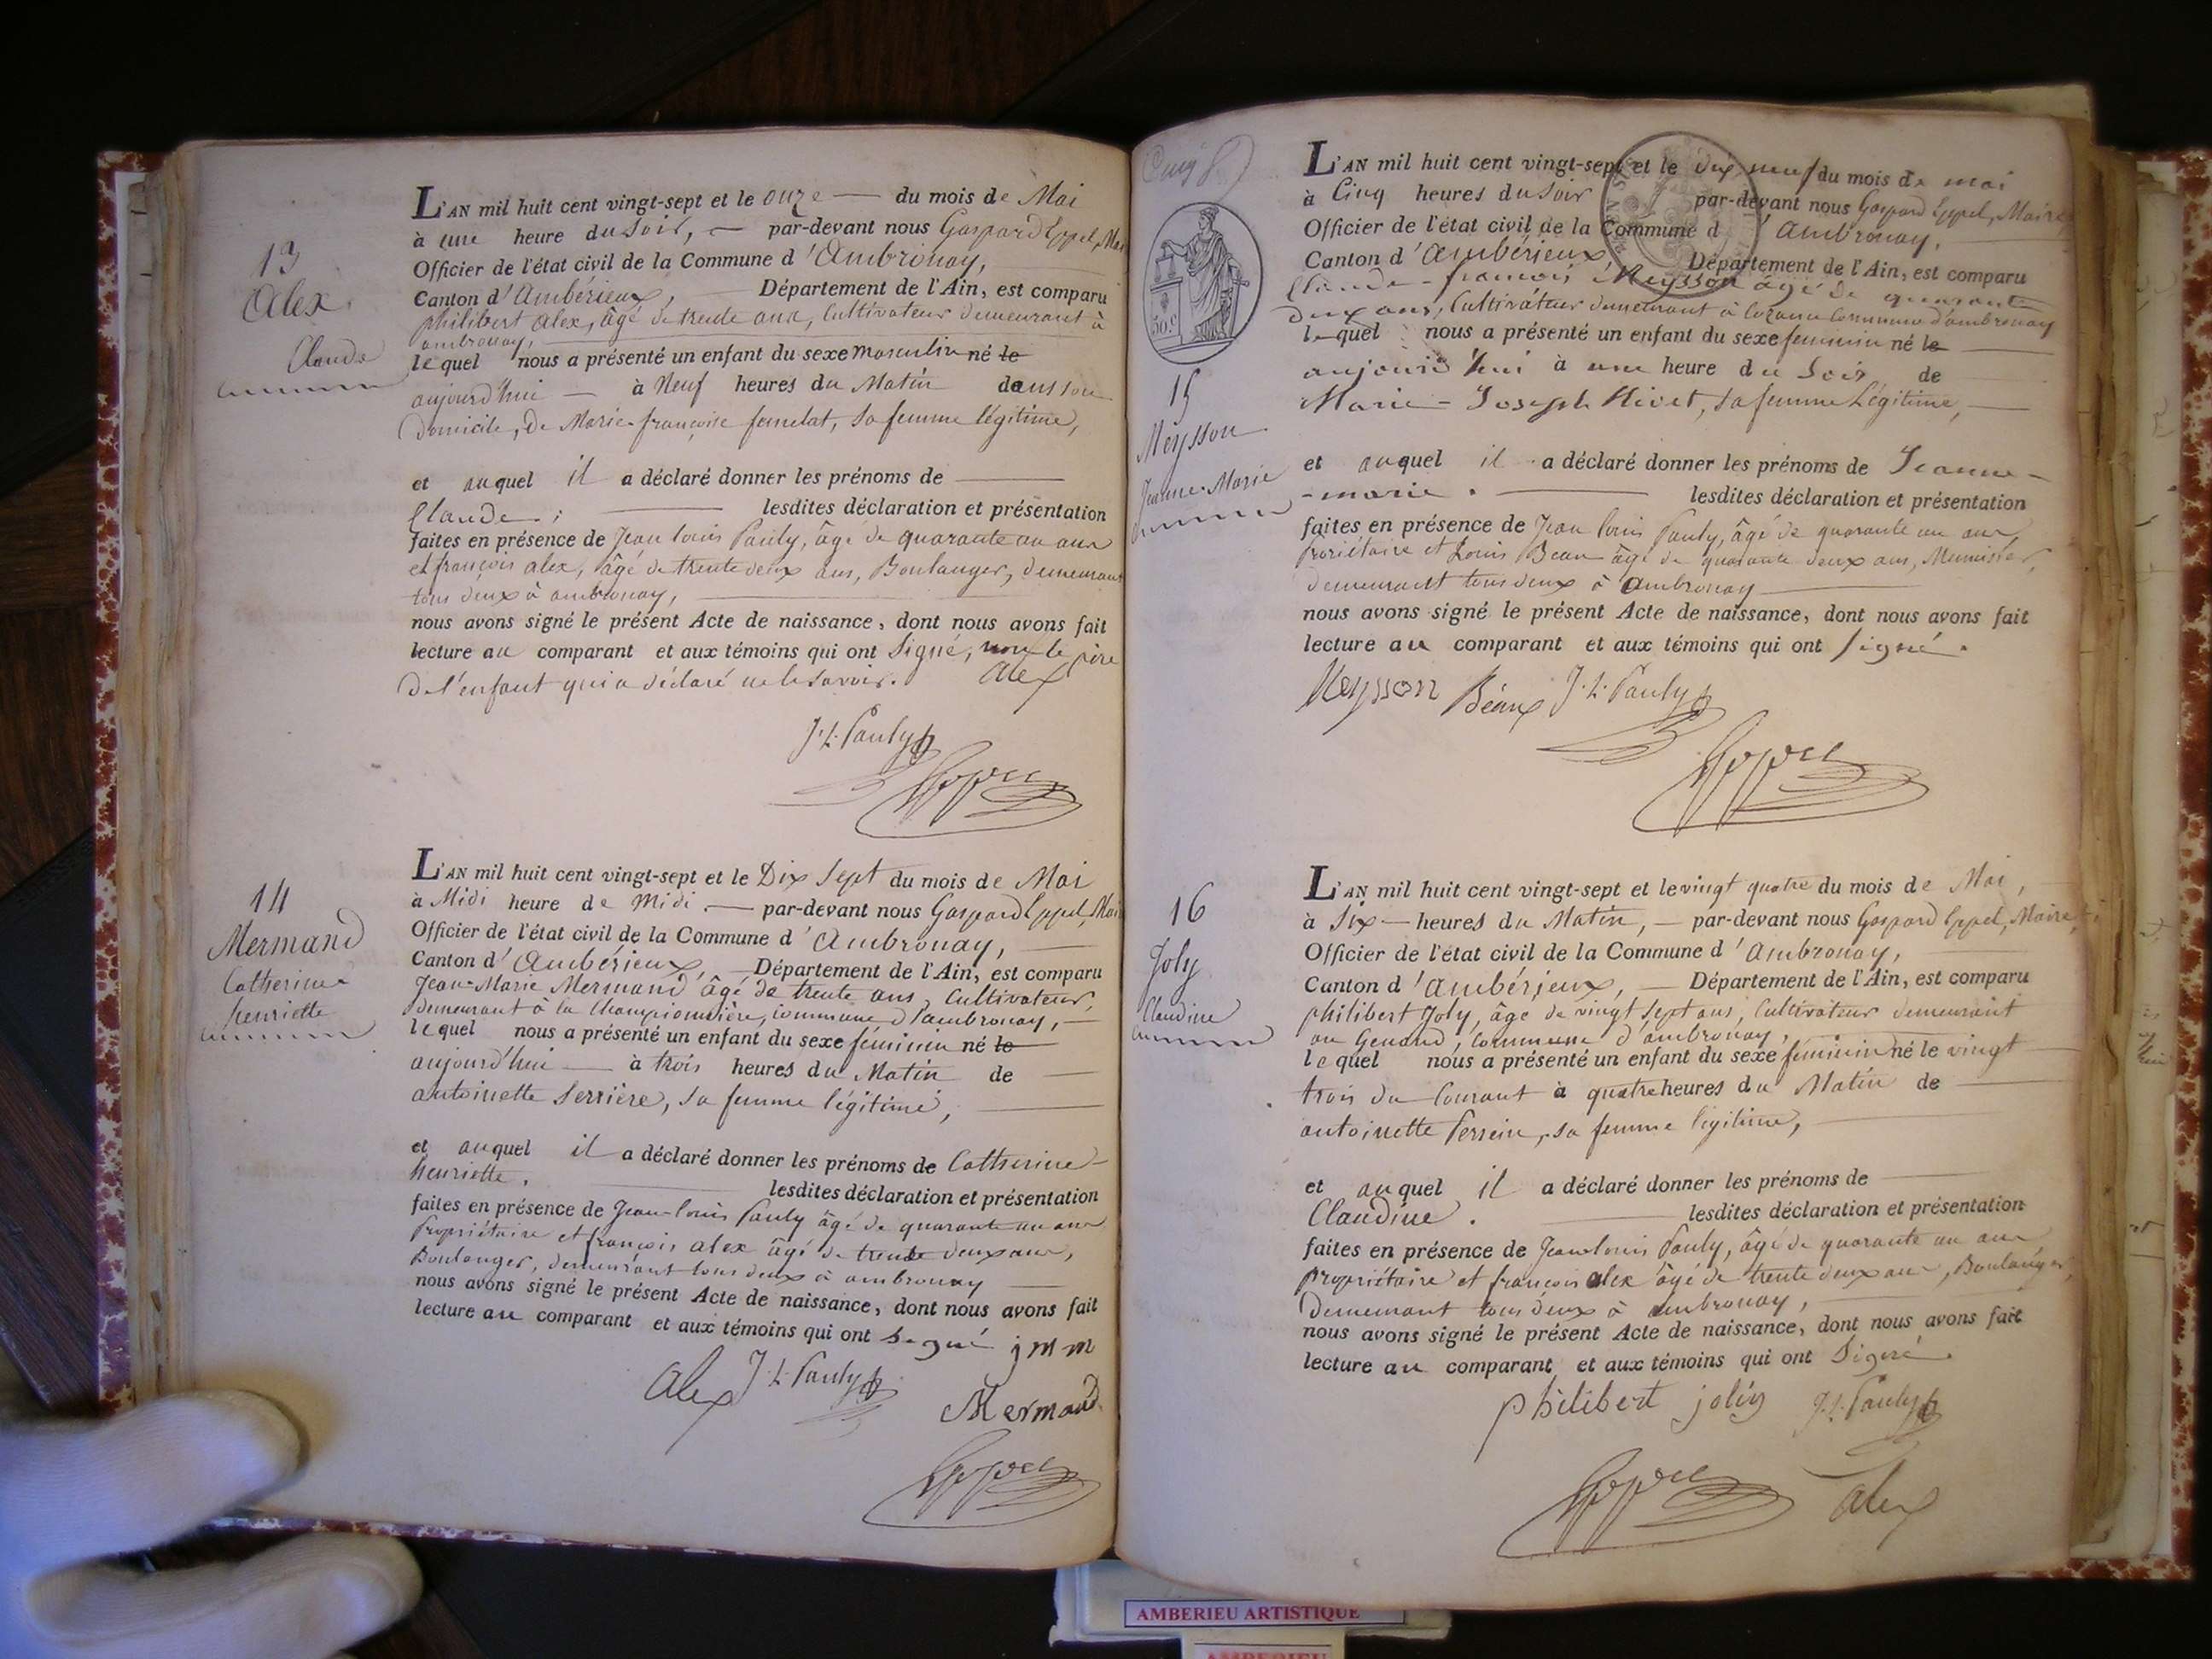 13
Alex
Claude
L'AN mil huit cent vingt-sept et le onze — du mois de Mai
à une heure du Soir, — par-devant nous Gaspard Eppel, Mai
Officier de l'état civil de la Commune d'Ambronay,
Canton d'Ambérieux, — Département de l'Ain, est comparu
philibert Alex, âgé de trente ans, Cultivateur demeurant à
ambronay,
lequel nous a présenté un enfant du sexe masculin né le
aujourd'hui — à Neuf heures du Matin dans son
Domicile, De Marie-françoise femelat, sa femme légitime,
et auquel il a déclaré donner les prénoms de
Claude; lesdites déclaration et présentation
faites en présence de Jean louis Pauly, âgé de quarante un ans
et françois alex, âgé de trente deux ans, Boulanger, demeurant
tous deux à ambronay,
nous avons signé le présent Acte de naissance, dont nous avons fait
lecture au comparant et aux témoins qui ont Signé, non le père
De l'enfant qui a déclaré ne le savoir. alex
J. L. Pauly
14
Mermand
Catherine
henriette
L'AN mil huit cent vingt-sept et le Dix Sept du mois de Mai
à Midi heure de Midi. — par-devant nous Gaspard Eppel, Mai
Officier de l'état civil de la Commune d'Ambronay,
Canton d'Ambérieux, Département de l'Ain, est comparu
Jean-Marie Mermand âgé de trente ans, Cultivateur,
demeurant à la Championnière, commune d'ambronay,
lequel nous a présenté un enfant du sexe féminin né le
aujourd'hui — à trois heures du Matin de
antoinette Serrière, sa femme légitime,
et auquel il a déclaré donner les prénoms de Catherine-
henriette. lesdites déclaration et présentation
faites en présence de Jean-louis Pauly âgé de quarante un ans
Propriétaire et françois alex âgé de trente deux ans,
Boulanger, demeurant tous deux à ambronay
nous avons signé le présent Acte de naissance, dont nous avons fait
lecture au comparant et aux témoins qui ont Signé j m m
Alex J. L. Pauly
Mermand
50 c
15
Meysson
Jeanne-Marie
L'AN mil huit cent vingt-sept et le dix neuf du mois de mai
à Cinq heures du Soir par-devant nous Gaspard Eppel, Maire
Officier de l'état civil de la Commune d'Ambronay,
Canton d'Ambérieux Département de l'Ain, est comparu
Claude-françois Meysson âgé de quarante
deux ans, Cultivateur demeurant à Commune d'ambronay
lequel nous a présenté un enfant du sexe féminin né le
aujourd'hui à une heure du Soir de
Marie-Joseph Nivet, sa femme Légitime,
et auquel il a déclaré donner les prénoms de Jeanne-
-marie. lesdites déclaration et présentation
faites en présence de Jean louis Pauly, âgé de quarante un ans,
Propriétaire et Louis Beau âgé de quarante deux ans, Menuisier,
demeurant tous deux à Ambronay
nous avons signé le présent Acte de naissance, dont nous avons fait
lecture au comparant et aux témoins qui ont signé.
Meysson J. L. Pauly
16
Joly
Claudine
L'AN mil huit cent vingt-sept et le vingt quatre du mois de Mai,
à Six — heures du Matin, — par-devant nous Gaspard Eppel, Maire
Officier de l'état civil de la Commune d'Ambronay,
Canton d'Ambérieux, — Département de l'Ain, est comparu
philibert Joly, âgé de vingt sept ans, Cultivateur demeurant
au Genoud, commune d'ambronay,
lequel nous a présenté un enfant du sexe féminin né le vingt
trois du Courant à quatre heures du Matin de
antoinette Perrein, sa femme légitime,
et auquel il a déclaré donner les prénoms de
Claudine. lesdites déclaration et présentation
faites en présence de Jean louis Pauly, âgé de quarante un ans
propriétaire et françois alex âgé de trente deux ans, Boulanger,
Demeurant tous deux à ambronay,
nous avons signé le présent Acte de naissance, dont nous avons fait
lecture au comparant et aux témoins qui ont Signé.
philibert joly J. L. Pauly
alex
AMBERIEU ARTISTIQUE
AMBERIEU